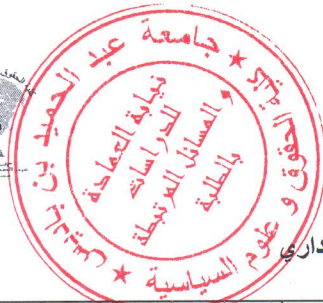 جامعة عبد الحميد بن باديس
الحقوق و علوم السياسية
نيابة العمادة
للدراسات
و المسائل المرتبطة
بالطلبة
داري